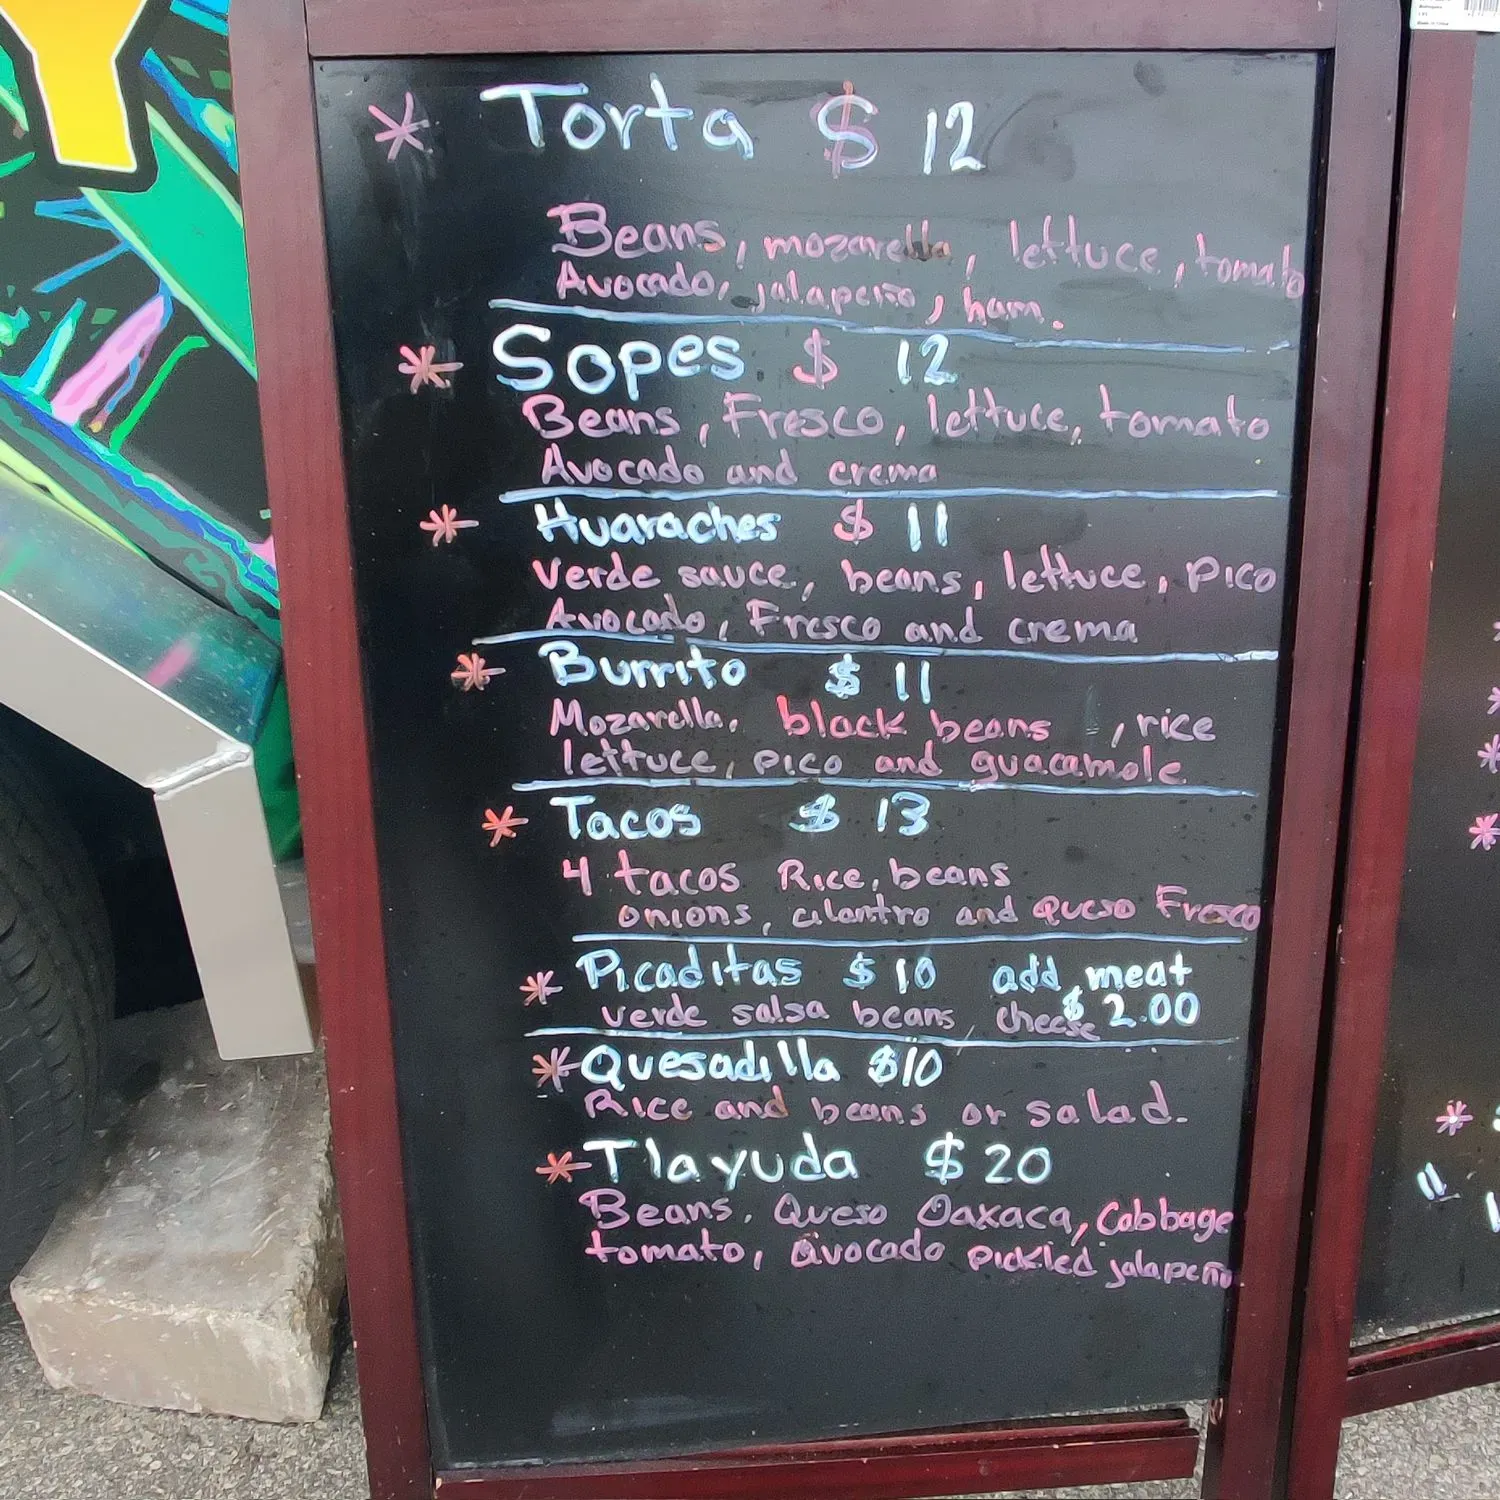 * Torta $ 12
Beans, mozarella, lettuce, tomato
Avocado, jalapeño, ham.
* Sopes $ 12
Beans, Fresco, lettuce, tomato
Avocado and crema
* Huaraches $ 11
Verde sauce, beans, lettuce, Pico
Avocado, Fresco and crema
* Burrito $ 11
Mozarella, black beans , rice
lettuce, pico and guacamole
* Tacos $ 13
4 tacos Rice, beans
onions, cilantro and queso Fresco
* Picaditas $ 10 add meat
verde salsa beans cheese $ 2.00
* Quesadilla $10
Rice and beans or salad.
* Tlayuda $ 20
Beans, Queso Oaxaca, Cabbage
tomato, avocado pickled jalapeño